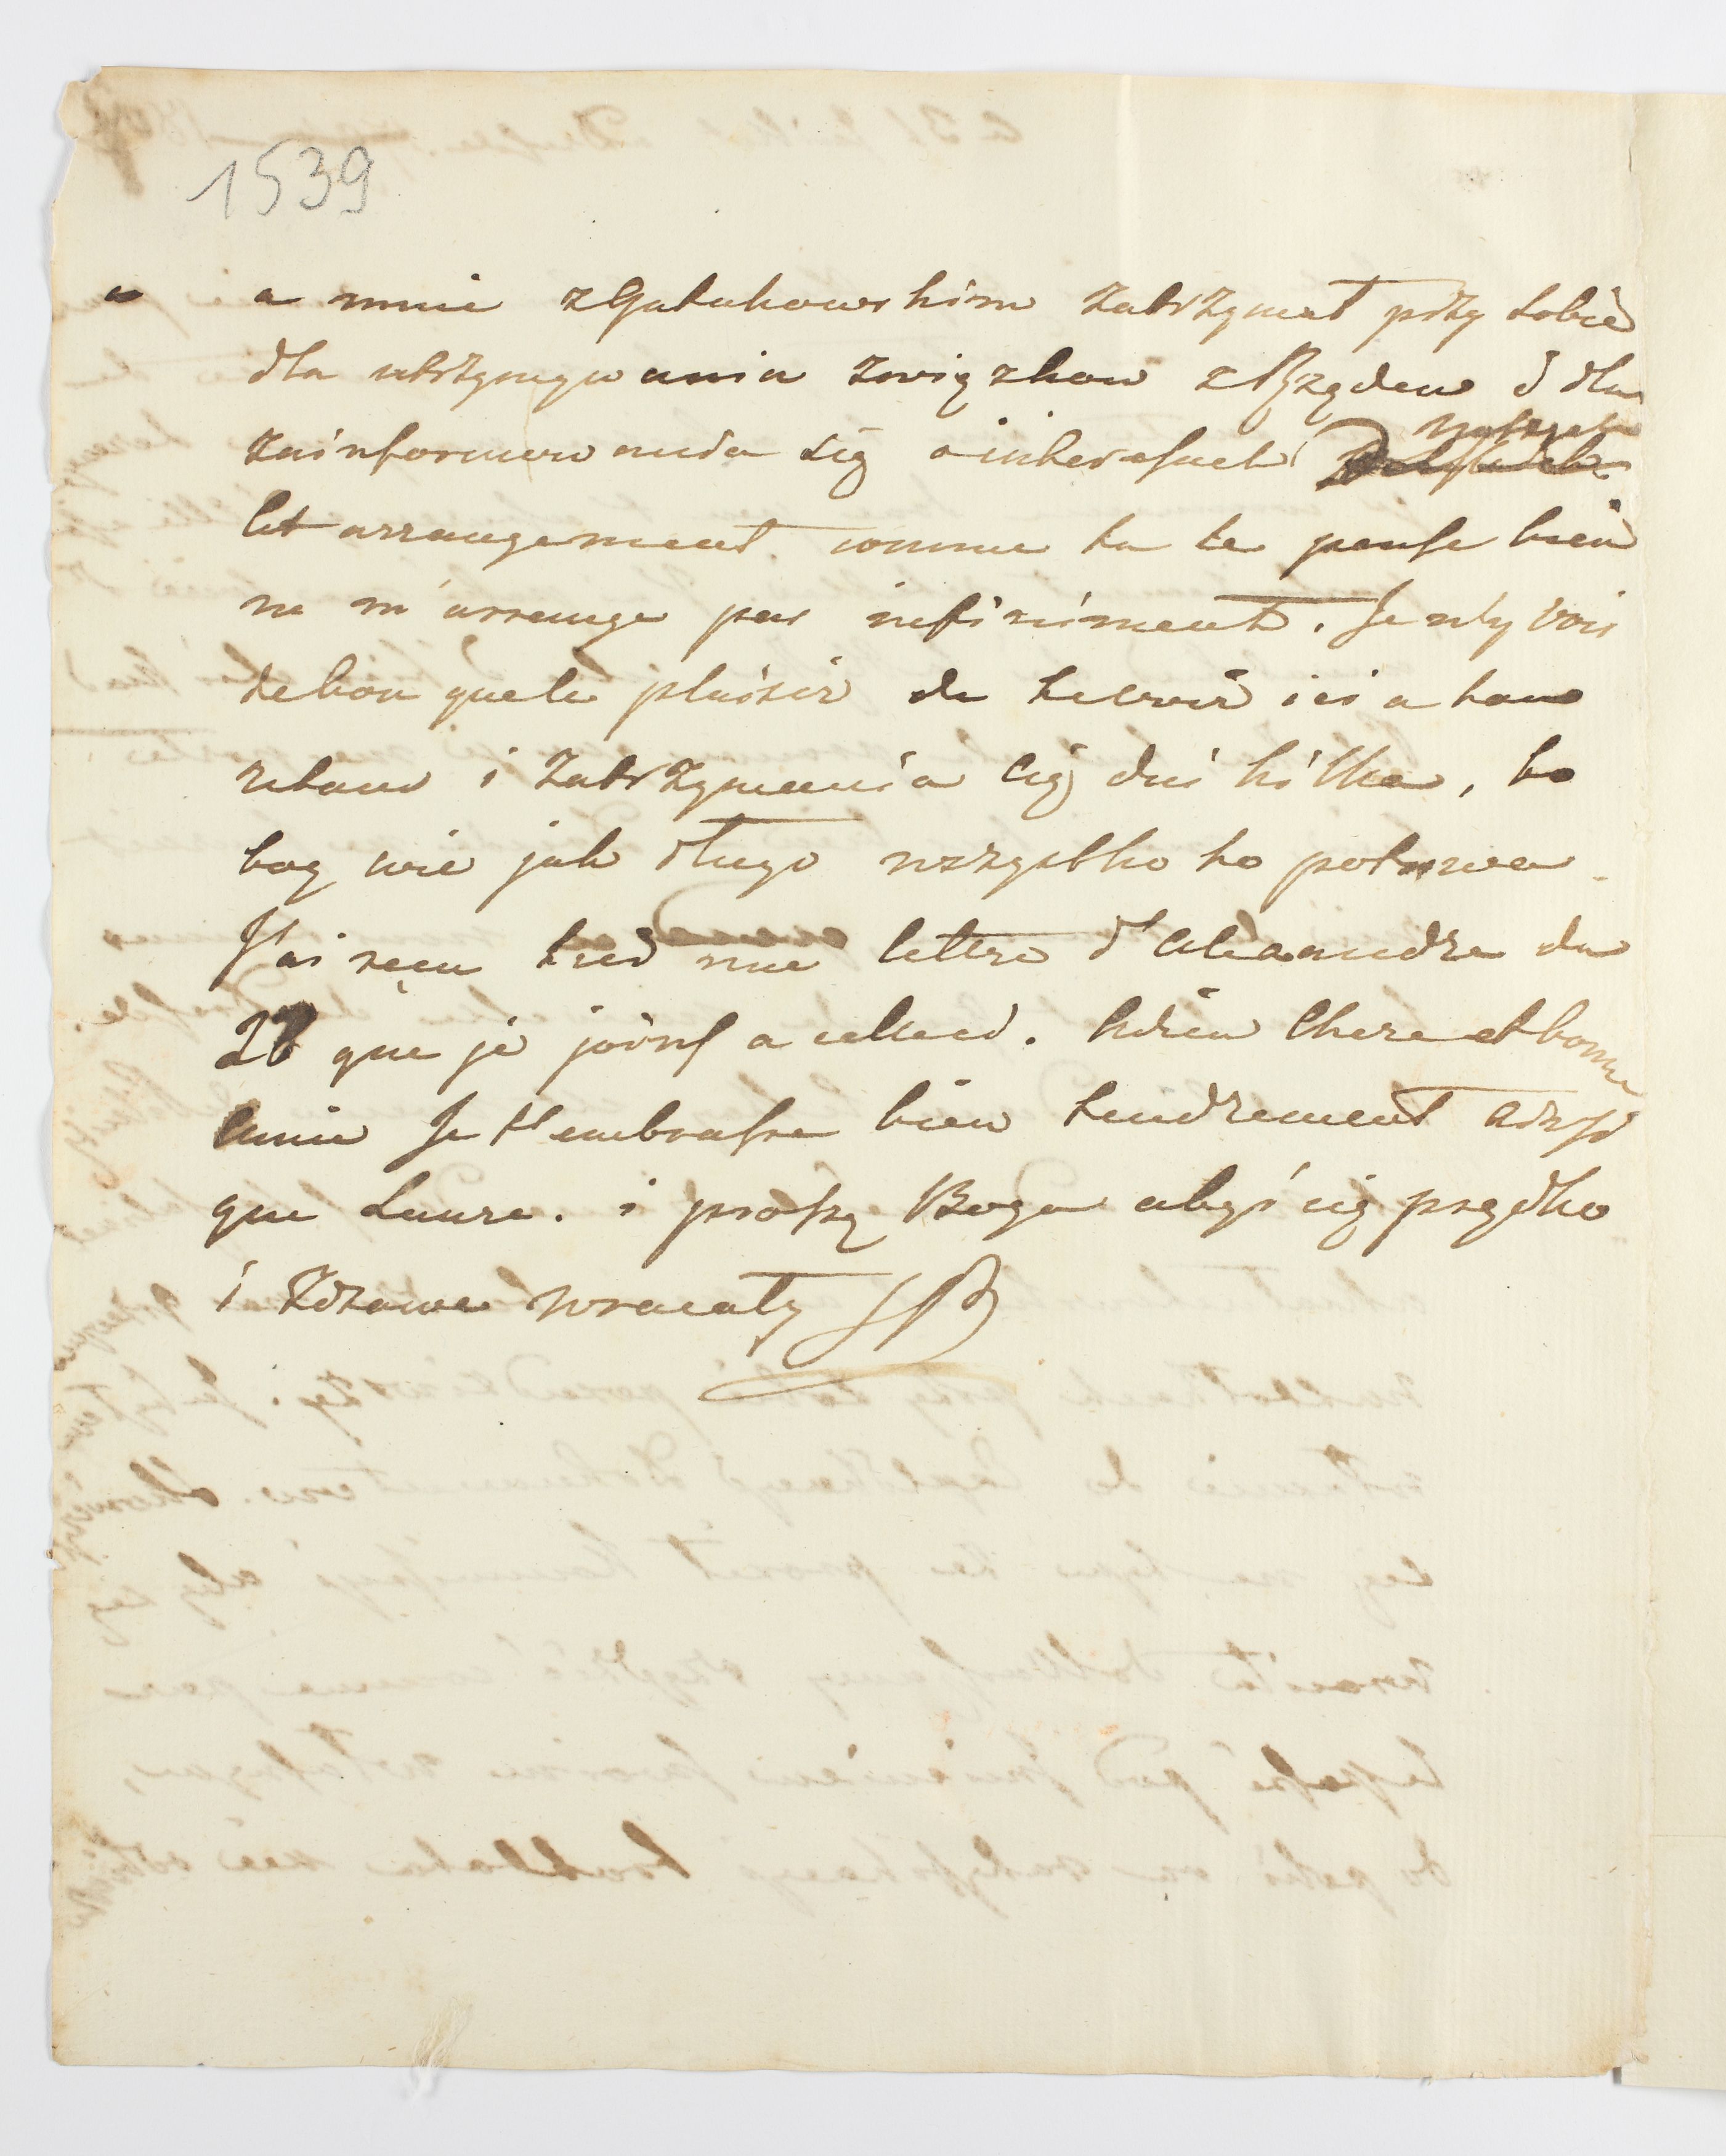 1539
a mnie z Gutakowskim zatrzymał przy sobie
dla utrzymywania związkow z Rządem i dla
zainformowania się o interesach
Cet arrangement comme tu te pense bien
ne m'arrange pas infiniment. Je n'y vois
de bon que le plaisir de te voir ici a ton
retour i zatrzymania cię dni kilka, bo
bog wie jak długo wszystko to potrwa.
J'ai reçu hier une lettre d'Alexandre du
que je joins a celleci. Adieu Chere et bonne
Amie Je t'embrasse bien tendrement ainsi
que Laure. i proszę Boga abyś się prędko
i zdrowe wracały SP